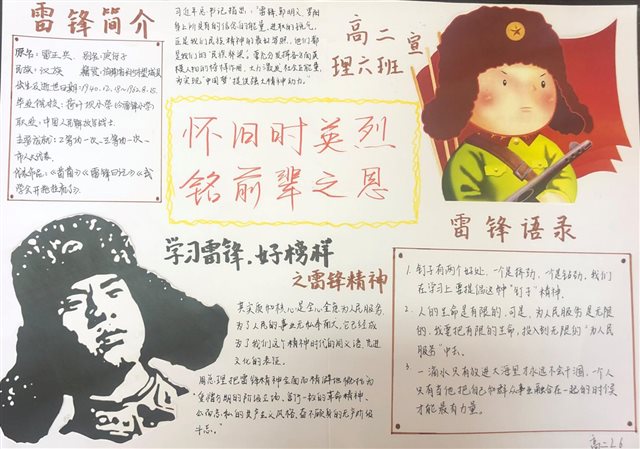 雷锋简介
原名：雷正兴. 别名：庚伢子
民族：汉族 籍贯：湖南省
出生及逝世日期：1940.12.18～1962.8.15.
毕业院校：荷叶坝小学(今雷锋小学)
职业：中国人民解放军战士.
主要成就：二等功一次、三等功一次、
市人大代表.
代表作品：《茵茵》《雷锋日记》《我
学会开拖拉机了》
习近平总书记指出："雷锋、郭明义、罗阳
身上所具有的信念的能量、
正是我们民族精神的最好写照，他们都
是我们的"民族脊梁"。要充分发挥各方面英
模人物的榜样作用，大力激发社会正能量，
为实现"中国梦"提供强大精神动力。"
高二 宣
理六班
怀旧时英烈
铭前辈之恩
学习雷锋.好榜样
之雷锋精神
其实质和核心是全心全意为人民服务，
为了人民的事业无私奉献，它已经成
为了我们这个精神时代的同义语、先进
文化的表征.
周总理把雷锋精神全面而精辟地概括为
"爱憎分明的阶级立场、言行一致的革命精神、
公而忘私的共产主义风格、奋不顾身的无产阶级
斗志。"
雷锋语录
1. 钉子有两个好处，一个是挤劲，一个是钻劲，我们
在学习上要提倡这种"钉子"精神.
2. 人的生命是有限的，可是，为人民服务是无限
的，我要把有限的生命，投入到无限的"为人民
服务"中去.
3. 一滴水只有放进大海里才永远不会干涸，一个人
只有当他把自己和群众事业融合在一起的时候
才能最有力量。
高二L6